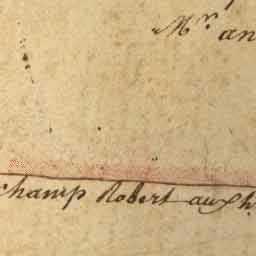 Mr an
champ Robert aux h